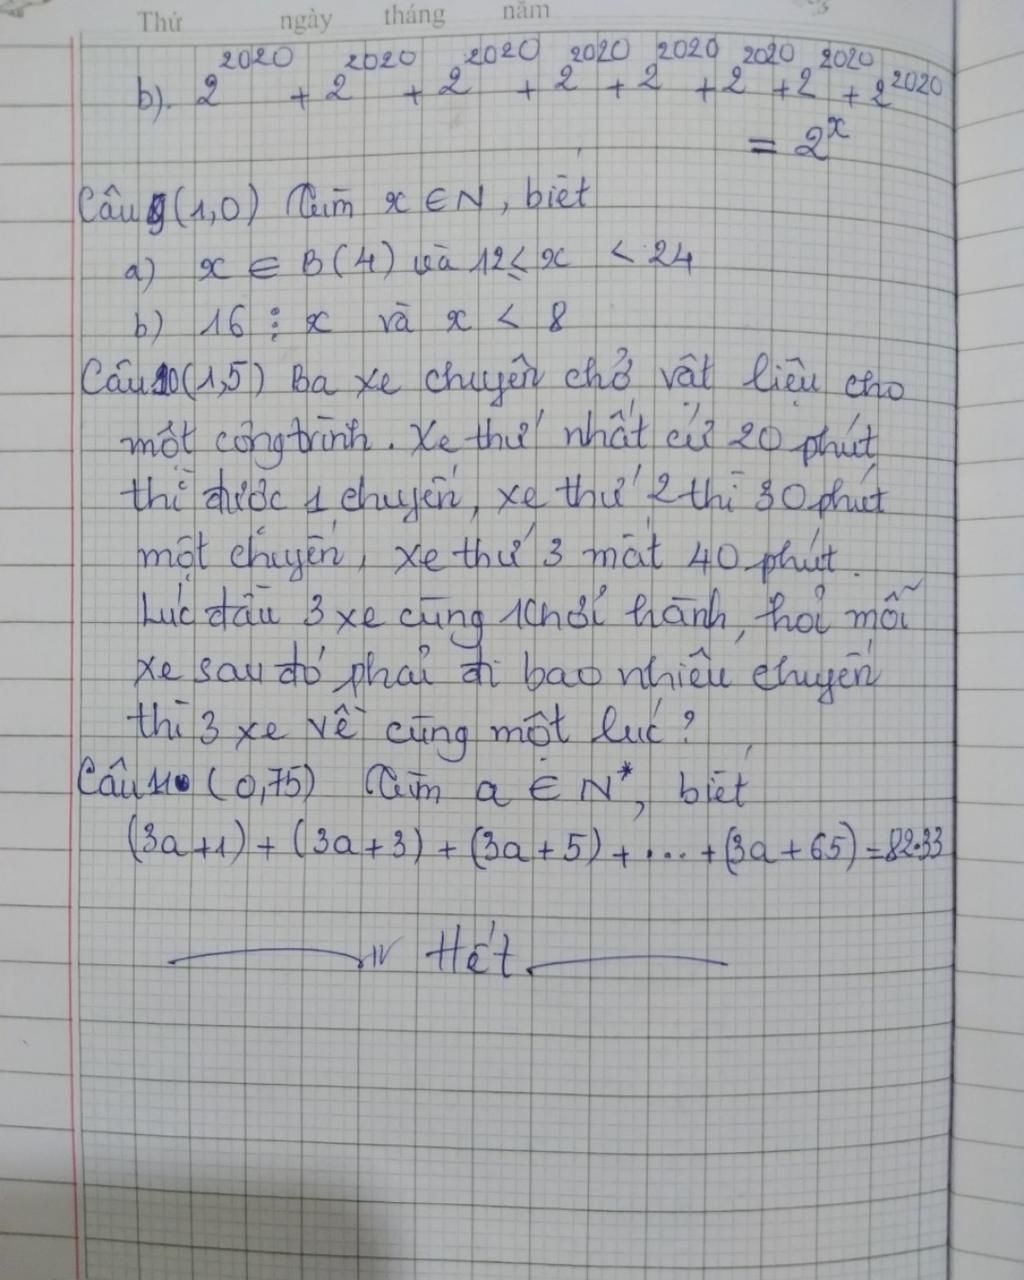 Thứ ngày tháng năm
b). 2^2020 + 2^2020 + 2^2020 + 2^2020 + 2^2020 + 2^2020 + 2^2020 + 2^2020
= 2^x
Câu 9 (1,0) Tìm x ∈ N, biết
a) x ∈ B(4) và 12 ≤ x < 24
b) 16 ⋮ x và x < 8
Câu 10 (1,5) Ba xe chuyên chở vật liệu cho
một công trình. Xe thứ nhất cứ 20 phút
thì được 1 chuyến, xe thứ 2 thì 30 phút
một chuyến, xe thứ 3 mất 40 phút.
Lúc đầu 3 xe cùng khởi hành, hỏi mỗi
xe sau đó phải đi bao nhiêu chuyến
thì 3 xe về cùng một lúc?
Câu 11 (0,75) Tìm a ∈ N*, biết
(3a+1) + (3a+3) + (3a+5) + ... + (3a+65) = 82.33
Hết